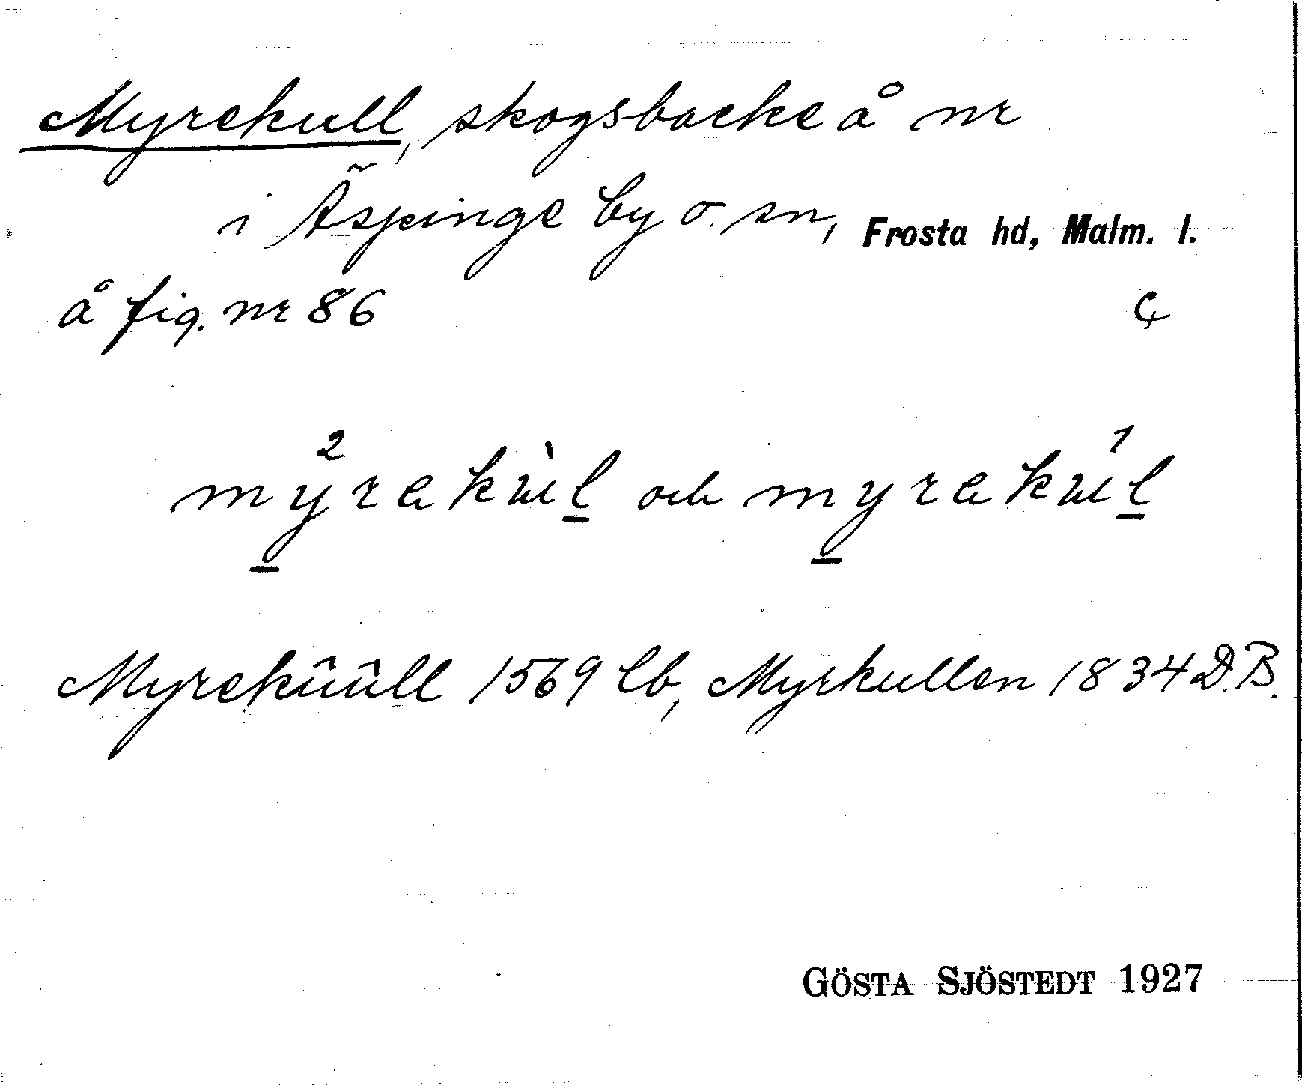 Myrekull, skogsbacke å nr
i Äspinge by o. sn, Frosta hd, Malm. l.
å fig. nr 86 Ç
my²rekùl och myrekú¹l
Myrekûûll 1569 lb, Myrkullen 1834 D.B.
GÖSTA SJÖSTEDT 1927